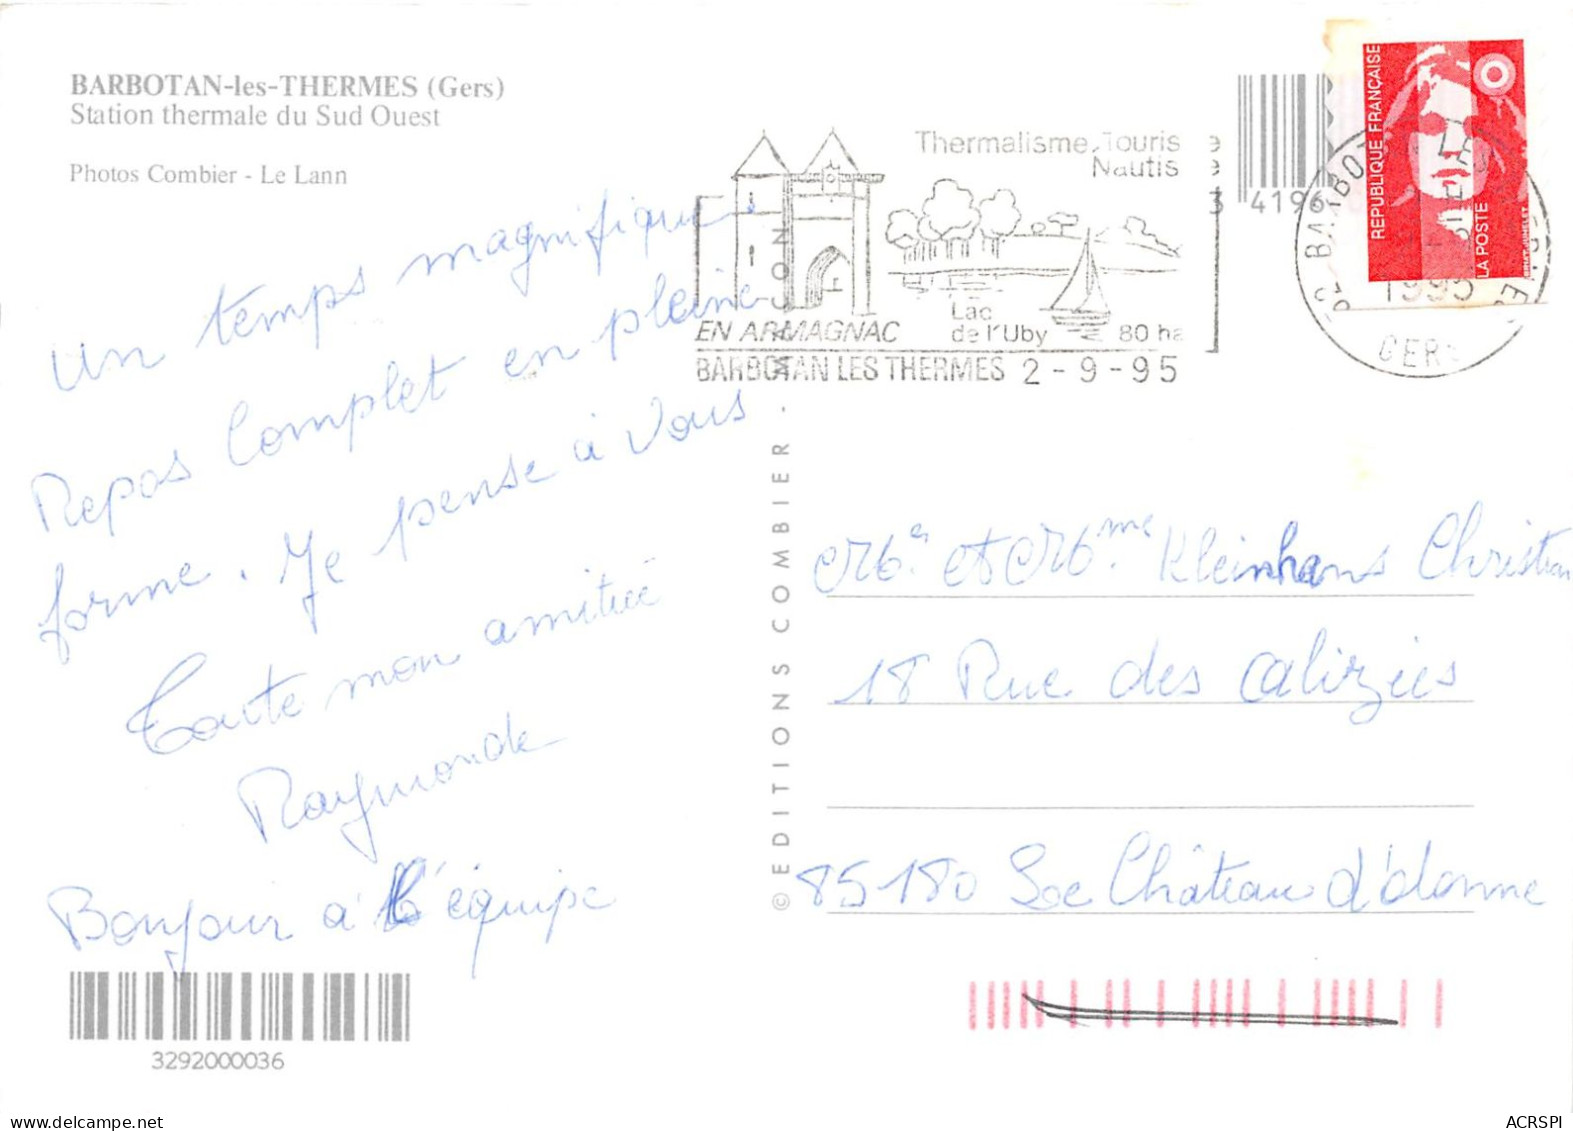 BARBOTAN-les-THERMES (Gers)
Station thermale du Sud Ouest
Photos Combier - Le Lann
Thermalisme, Touris e
Nautis e
Lac
de l'Uby
80 ha
EN ARMAGNAC
BARBOTAN LES THERMES 2-9-95
3 4196
REPUBLIQUE FRANÇAISE
LA POSTE
1995
GERS
Un temps magnifique
Repos Complet en pleine
forme. Je pense à vous
Toute mon amitiée
Raymonde
Bonjour à l'équipe
3292000036
© EDITIONS COMBIER . MACON
et Kleinhans Christian
18 Rue des alizées
85180 Le Château d'olonne
ACRSPI